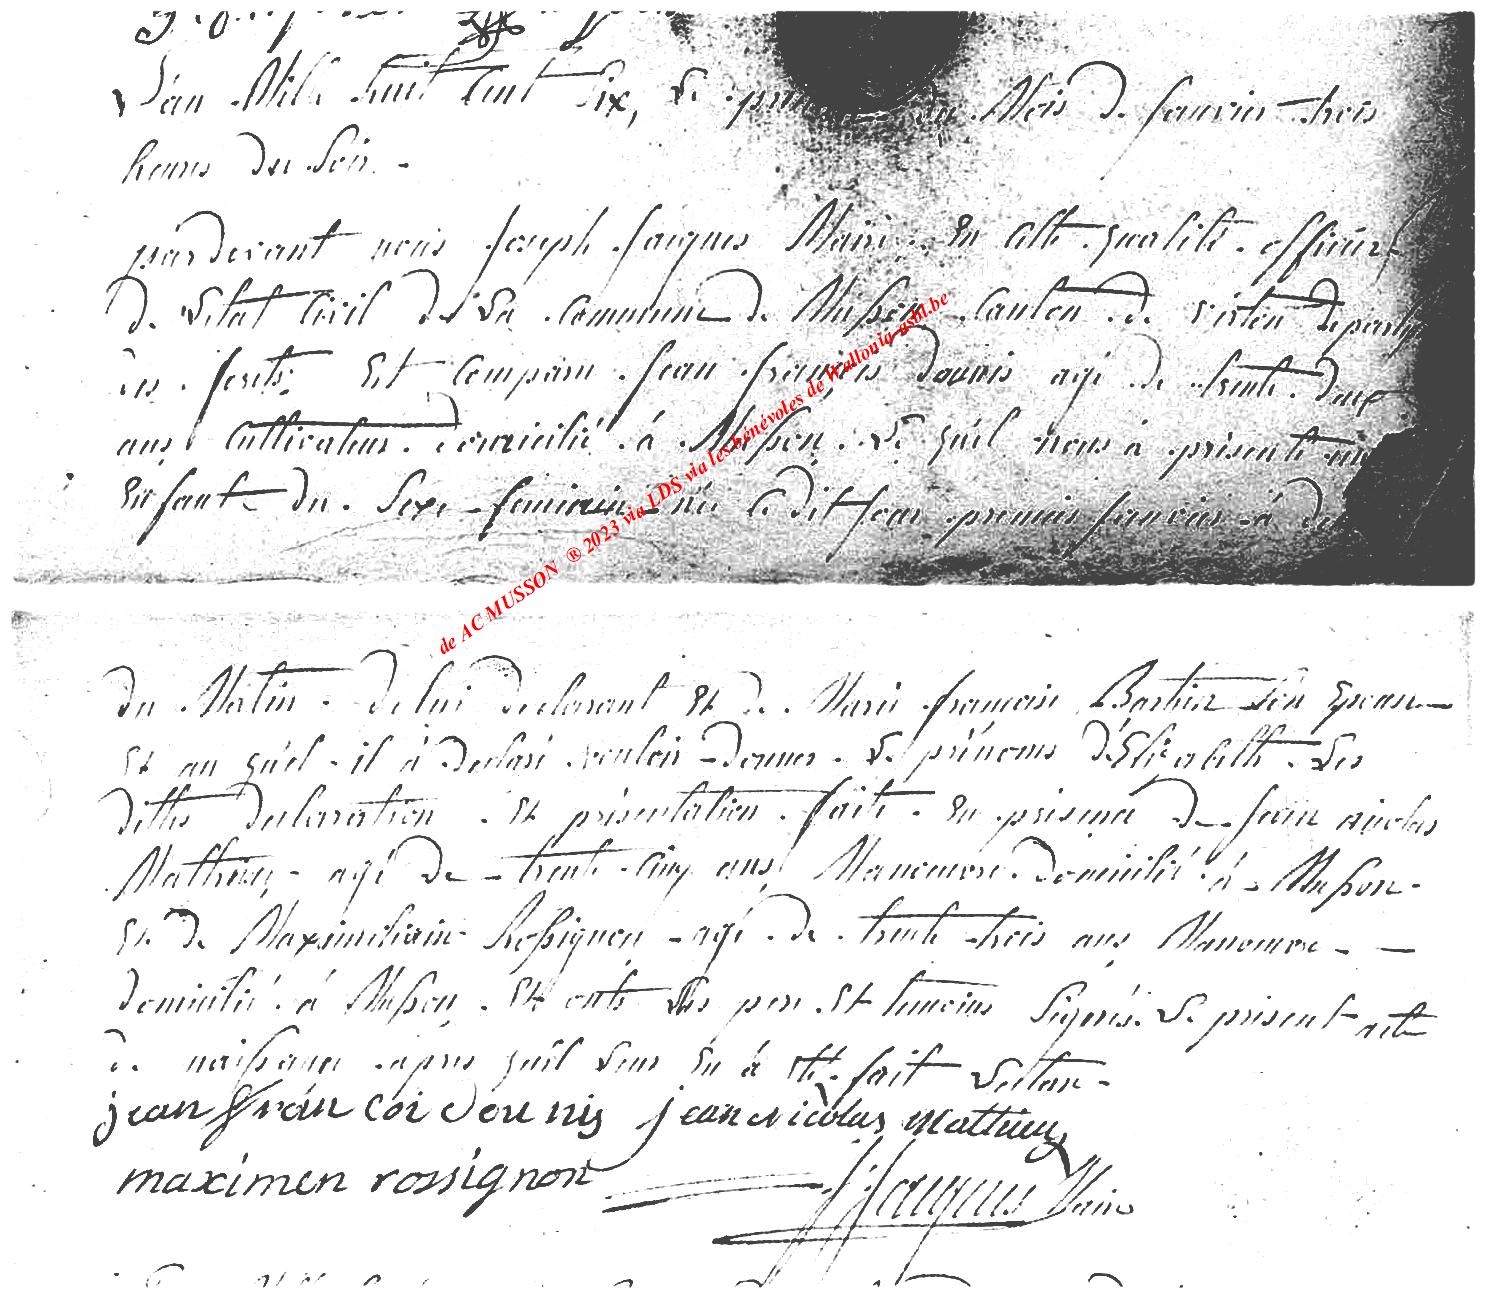 L'an Mille huit Cent Dix, Le du Mois De Janvier trois
heures du Soir. -
pardevant nous Joseph Jacques Maire. En Cette qualité. officier
De L'etat Civil De La Commune De Musson Canton De virton Depart
Des forets. Est Comparu Jean françois dounis agé De trente Deux
ans Cultivateur. Domicilié à Musson. Le qu'el nous à présenté un
Enfant du Sexe feminin née Ce Dit Jour premier Janvier à
du Matin - De lui Declarant Et De Marie françoise Barthier Son Epouse
Et au qu'el - il à Declaré vouloir Donner Le prénoms d'Elizabeth. Les
dittes Declaration Et présentation faite En présence De Jean nicolas
Mathieu, agé De trente Cinq ans Manoeuvre Domicilié à Musson -
Et De Maximiliain Rossignon - agé De trente trois ans Manoeuvre - -
Domicilié à Musson. Et onts Les pere Et temoins Signés Le présent acte
De naissance après qu'il Leur En à Eté fait Lecture -
jean fran coi dounis jean nicolas mathieu
maximen rossignon JJacques Maire
de AC MUSSON ® 2023 via LDS via les bénévoles de Wallonia-asbl.be